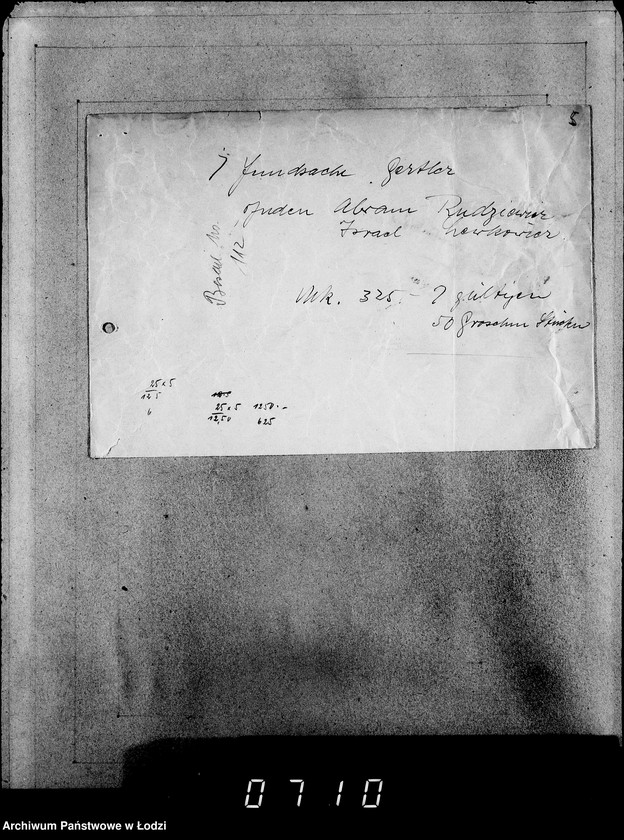 5
Fundsache Gertler
Juden Abram Rudziewicz
Israel Lewkowicz
112
Mk. 325.- 7 gültigen
50 Groschen Stücken
25 x 5
12 5
6
25 x 5 1250.-
12,50 625
0710
Archiwum Państwowe w Łodzi